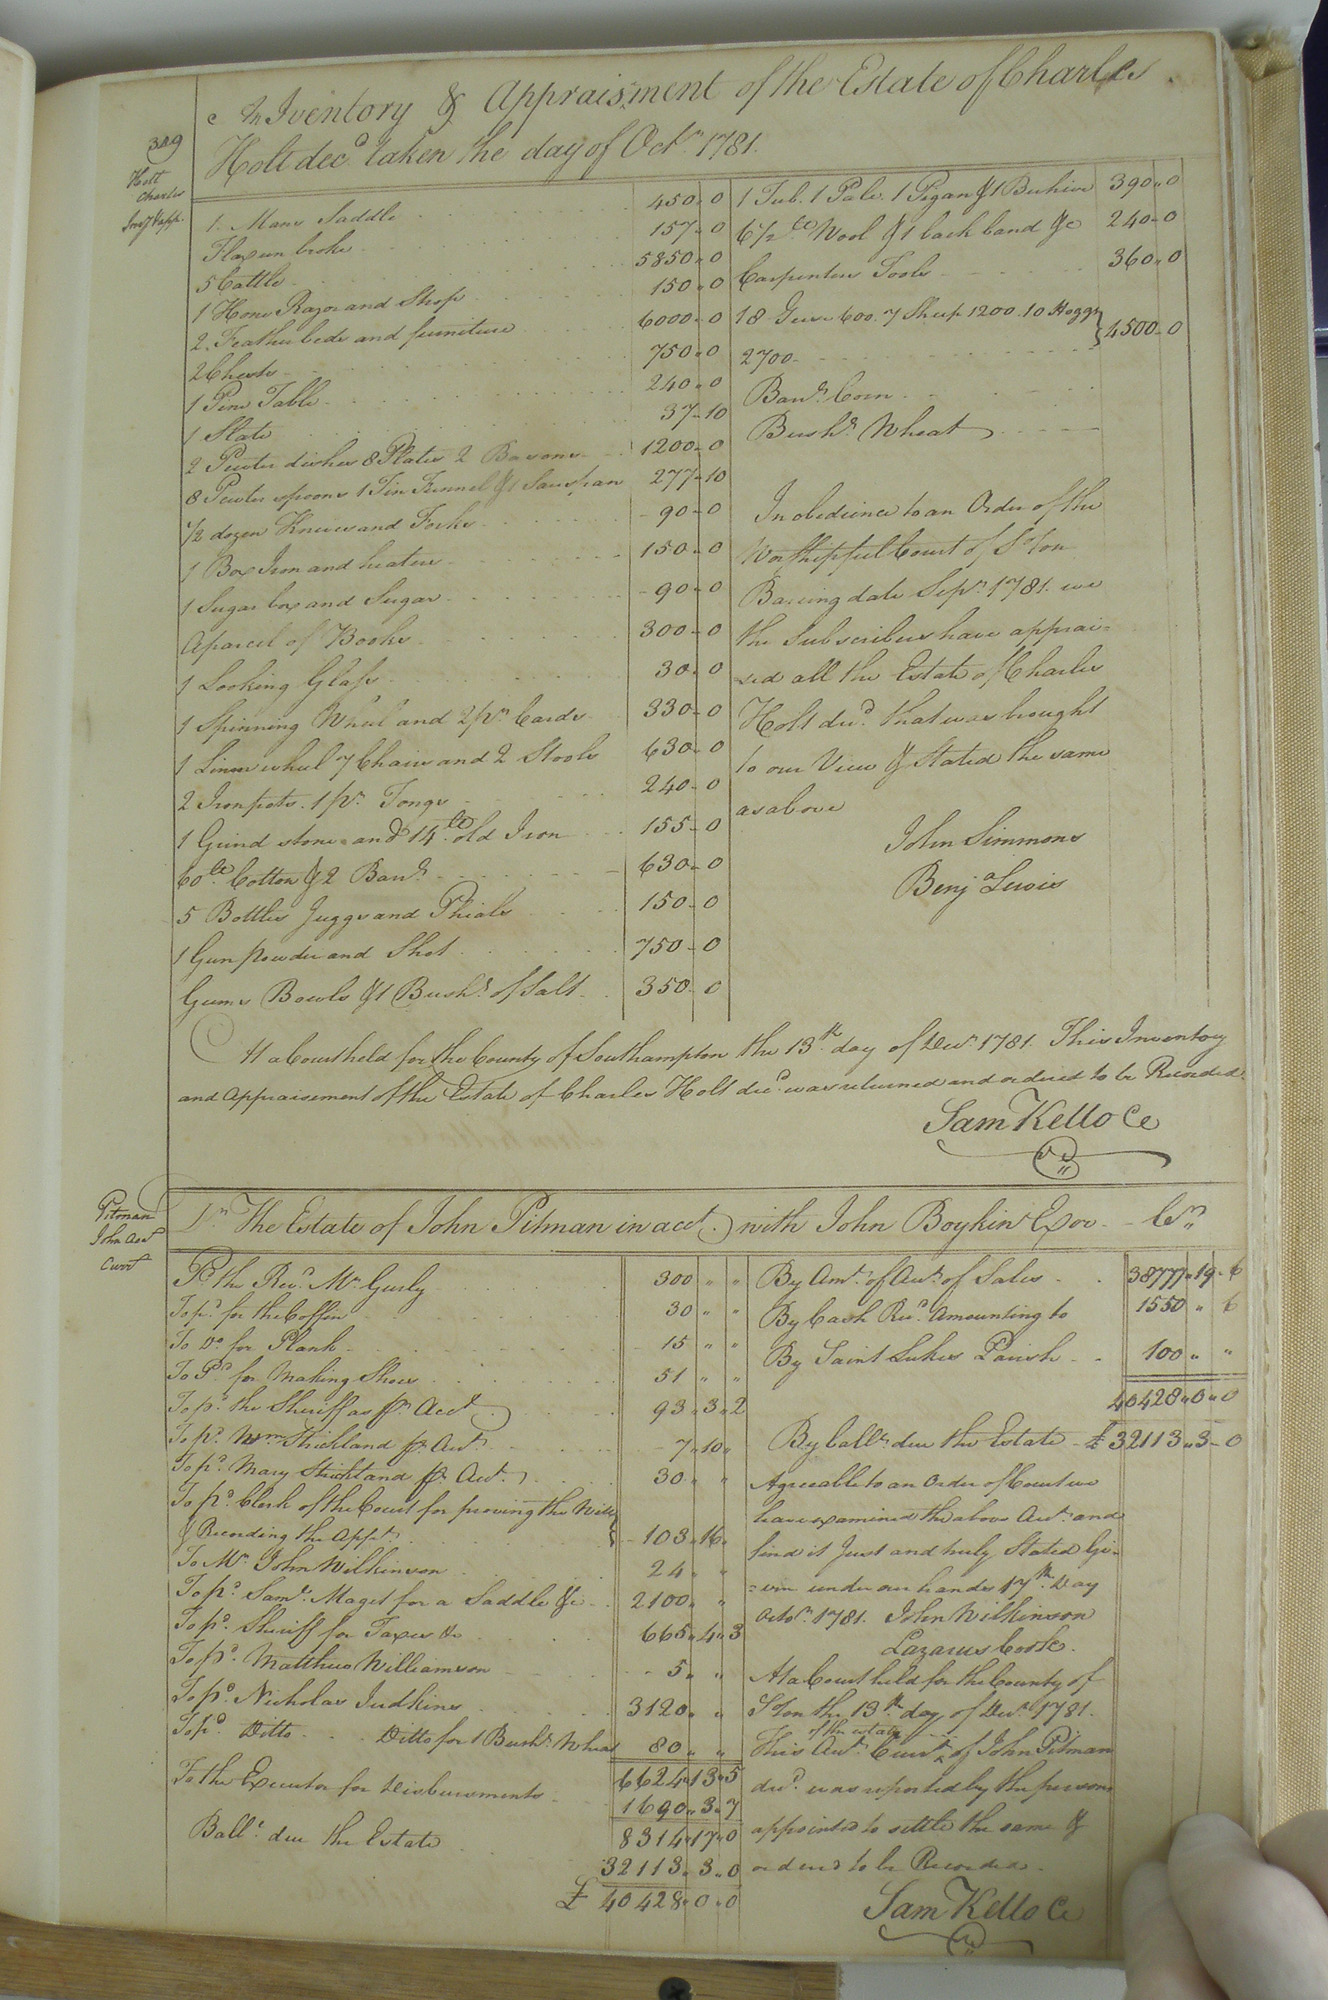 309
Holt
Charles
Inv.y & App.
An Iventory & Appraisment of the Estate of Charles
Holt dec.d taken the day of Oct.r 1781.
1. Mans Saddle 450 " 0
Flax un broke 157 " 0
5 Cattle 5850 " 0
1 Hone Razor and Strop 150 " 0
2. Feather beds and furniture 6000 " 0
2 Chests 750 " 0
1 Pine Table 240 " 0
1 Slate 37 " 10
2 Pewter dishes 8 Plates 2 Basons 1200 " 0
8 Pewter spoons 1 Tin Funnel & 1 Sauspan 277 " 10
1/2 dozen Knives and Forks 90 " 0
1 Box Iron and heaters 150 " 0
1 Sugar box and Sugar 90 " 0
A parcel of Books 300 " 0
1 Looking Glass 30 " 0
1 Spinning Wheel and 2 p.r Cards 330 " 0
1 Linen wheel 7 Chairs and 2 Stools 630 " 0
2 Iron pots. 1 p.r Tongs 240 " 0
1 Grind stone and 14 lb. old Iron 155 " 0
60 lb. Cotton & 2 Barr.s 630 " 0
5 Bottles Juggs and Phials 150 " 0
1 Gun powder and Shot 750 " 0
Gums Bowls & 1 Bush.l of Salt 350 " 0
1 Tub. 1 Pale. 1 Pigan & 1 Beehive 390 " 0
6 1/2 lb Wool & 1 back band &c 240 " 0
Carpenters Tools 360 " 0
18 Geese 600. 7 Sheep 1200. 10 Hoggs
2700 4500 " 0
Barr.s Corn
Bush.s Wheat
In obedience to an Order of the
Worshipful Court of So.ton
Bareing date Sep.r 1781. we
the Subscribers have apprai=
sed all the Estate of Charles
Holt dec.d that was brought
to our View & Stated the same
as above
John Simmons
Benj.a Lewis
At a Court held for the County of Southampton the 13.th day of Dec.r 1781. This Inventory
and Appraisement of the Estate of Charles Holt dec.d was returned and ordered to be Recorded.
Sam Kello Cc
Pitman
John Acc.t
Curr.t
D.r The Estate of John Pitman in acc.t with John Boykin Exor. C.r
P.d the Rev.d M.r Gurly 300 " "
To p.d for the Coffin 30 " "
To D.o for Plank 15 " "
To P.d for Making Shoes 51 " "
To p.d the Sheriff as p.r Acc.t 93 " 3 " 2
To p.d W.m Strickland p.r Acc.t 7 " 10 "
To p.d Mary Strickland p.r Acc.t 30 " "
To p.d Clerk of the Court for proving the Will
& Recording the App.t 103 " 16 "
To M.r John Wilkinson 24 " "
To p.d Sam.l Maget for a Saddle &c 2100 " "
To p.d Sheriff for Taxes &c 665 " 4 " 3
To p.d Matthew Williamson 5 " "
To p.d Nicholas Judkins 3120 " "
To p.d Ditto Ditto for 1 Bush.l Wheat 80 " "
6624 " 13 " 5
To the Executor for Disbursments 1690 " 3 " 7
8314 " 17 " 0
Ball.e due the Estate 32113 " 3 " 0
£ 40428 " 0 " 0
By Am.t of Acc.t of Sales 38777 " 19 " 6
By Cash Rec.d Amounting to 1550 " " 6
By Saint Lukes Parish 100 " "
40428 " 0 " 0
By Ball.e due the Estate £ 32113 " 3 " 0
Agreeable to an Order of Court we
have examined the above Acc.t and
find it Just and truly Stated Gi=
=ven under our hands 17.th Day
Octo.r 1781. John Wilkinson
Lazarus Cook.
At a Court held for the County of
S.ton the 13.th day of Dec.r 1781.
of the estate
This Acc.t Curr.t ^ of John Pitman
dec.d was reported by the persons
appointed to settle the same &
ordered to be Recorded.
Sam Kello Cc